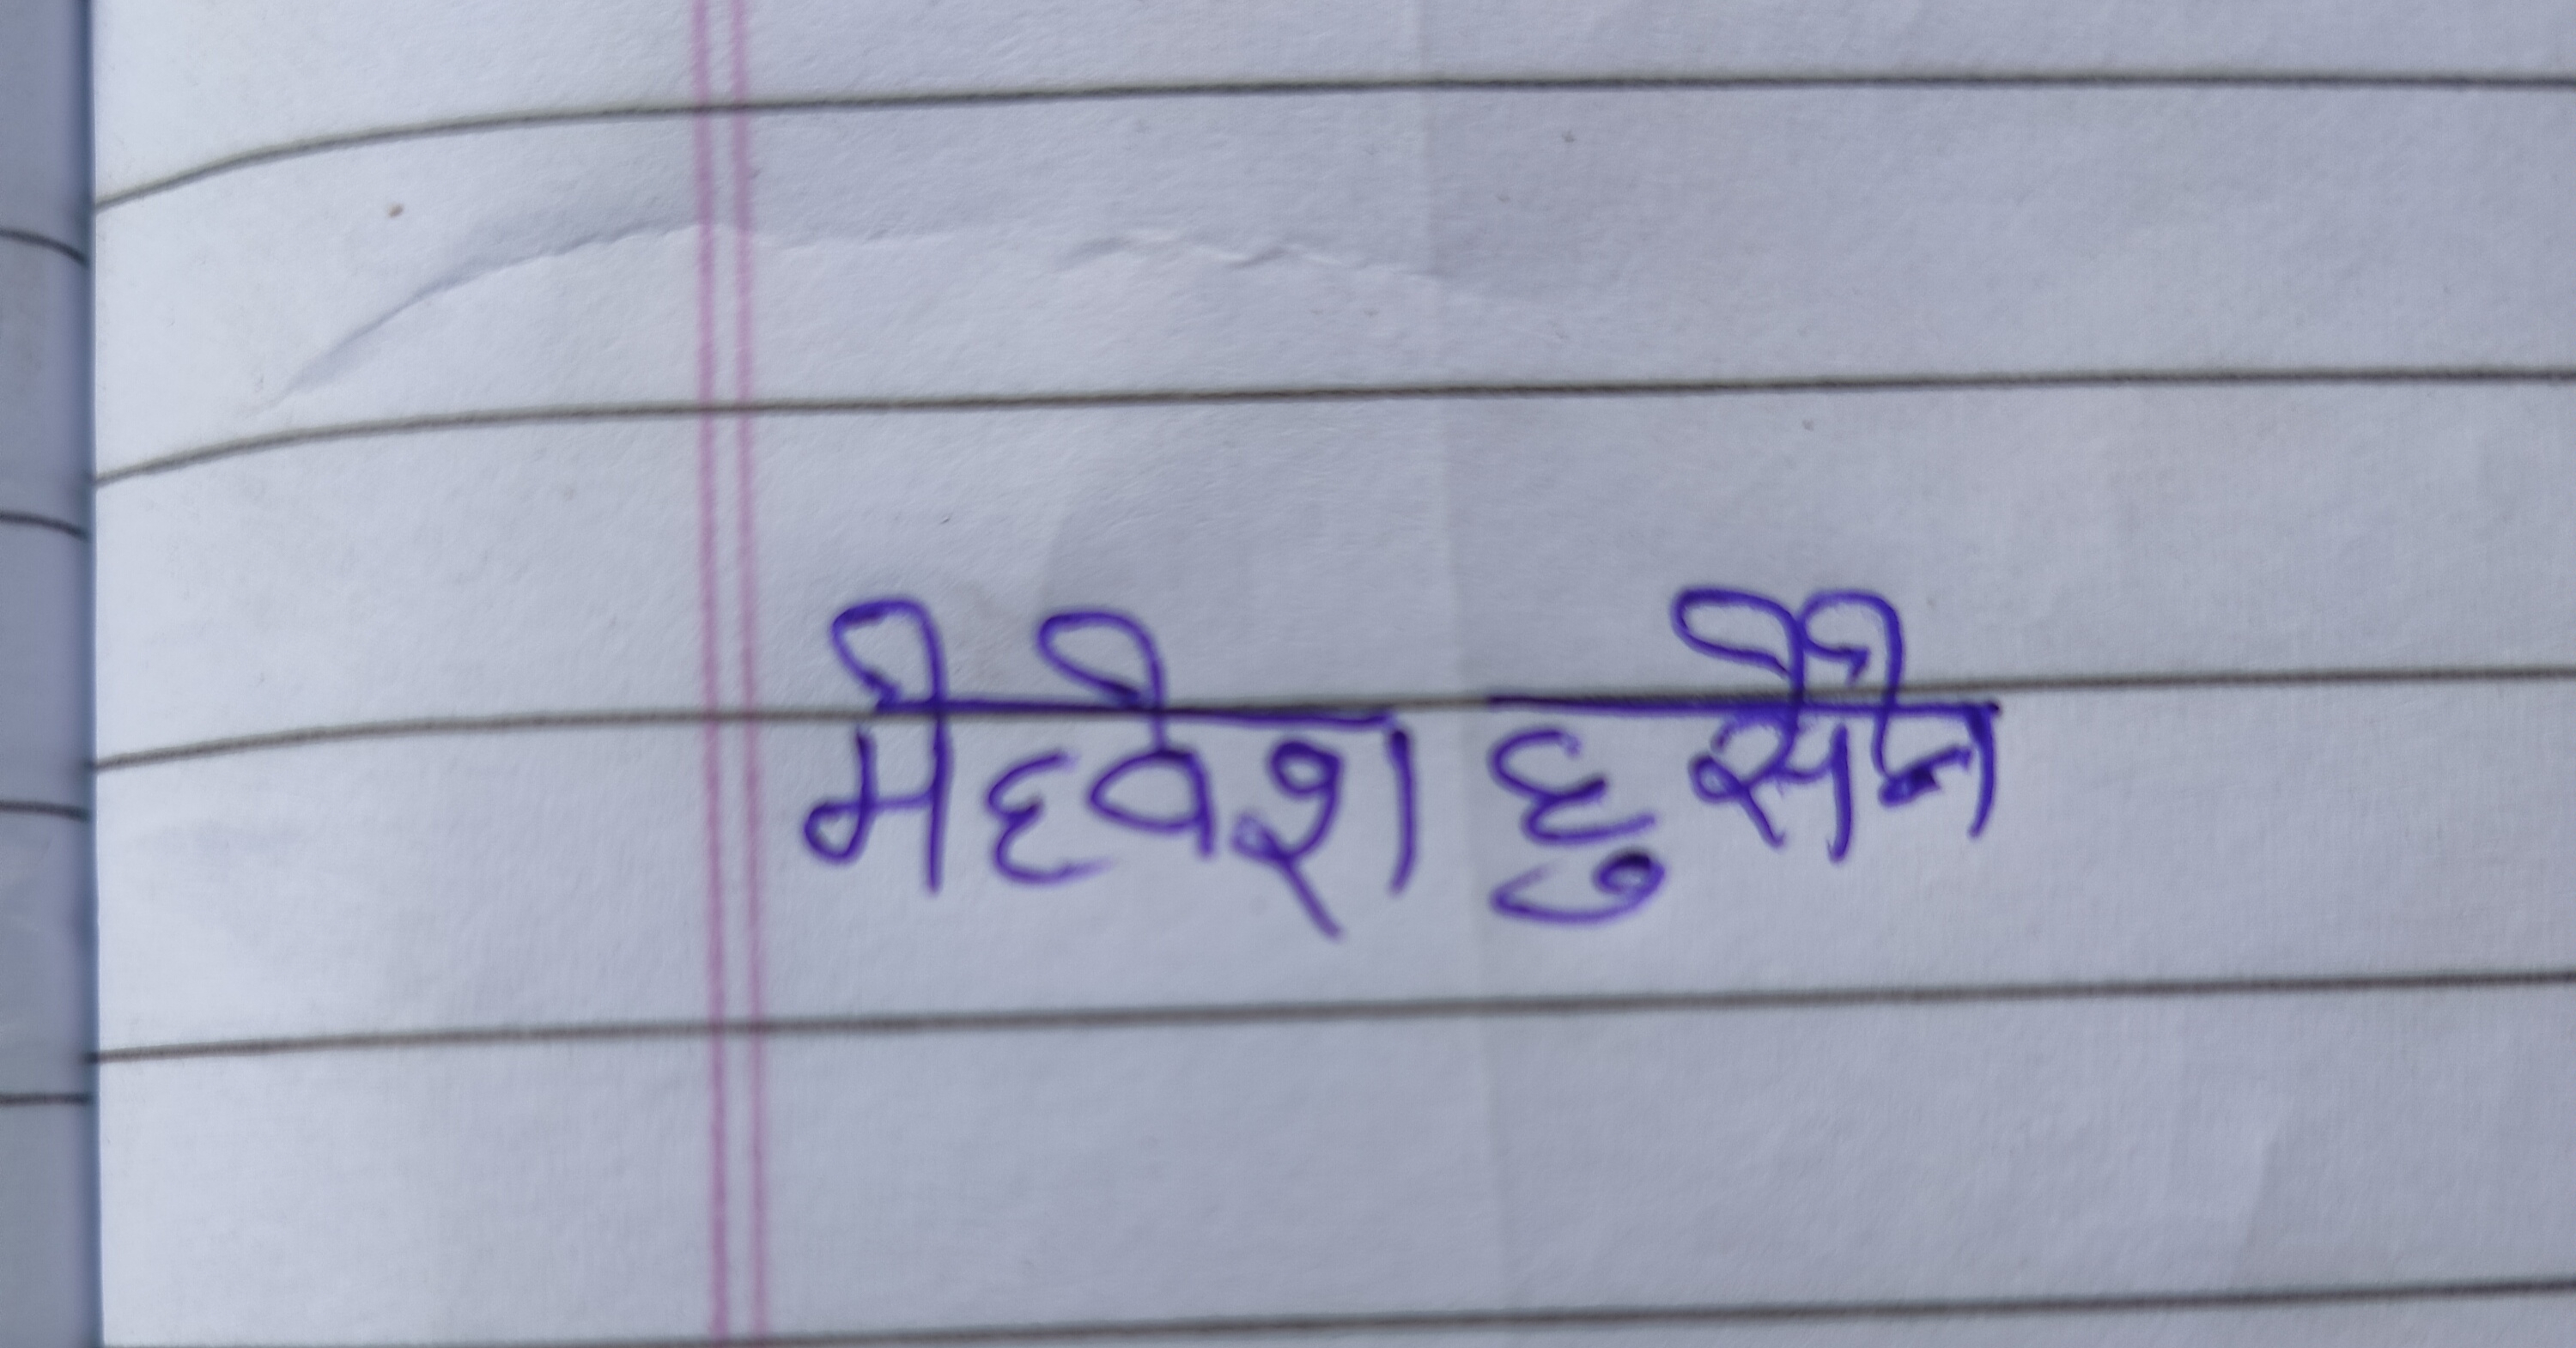 मेहवेश हुसैन